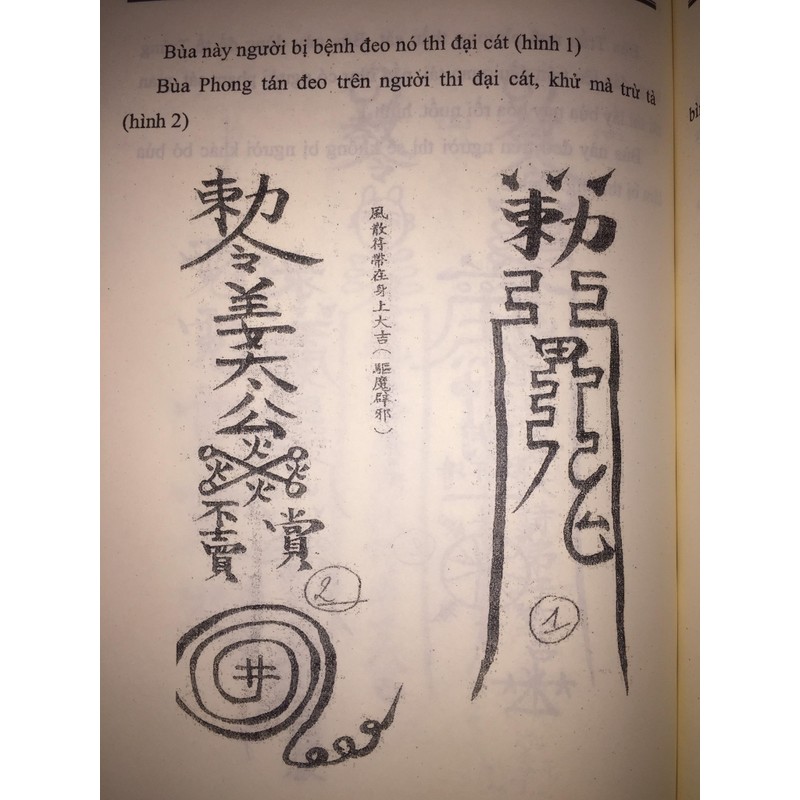 Bùa này người bị bệnh đeo nó thì đại cát (hình 1)
Bùa Phong tán đeo trên người thì đại cát, khử mà trừ tà
(hình 2)
勅令姜太公
火火火火
不賣
賞
2
井
風散符帶在身上大吉(驅魔辟邪)
勅
1